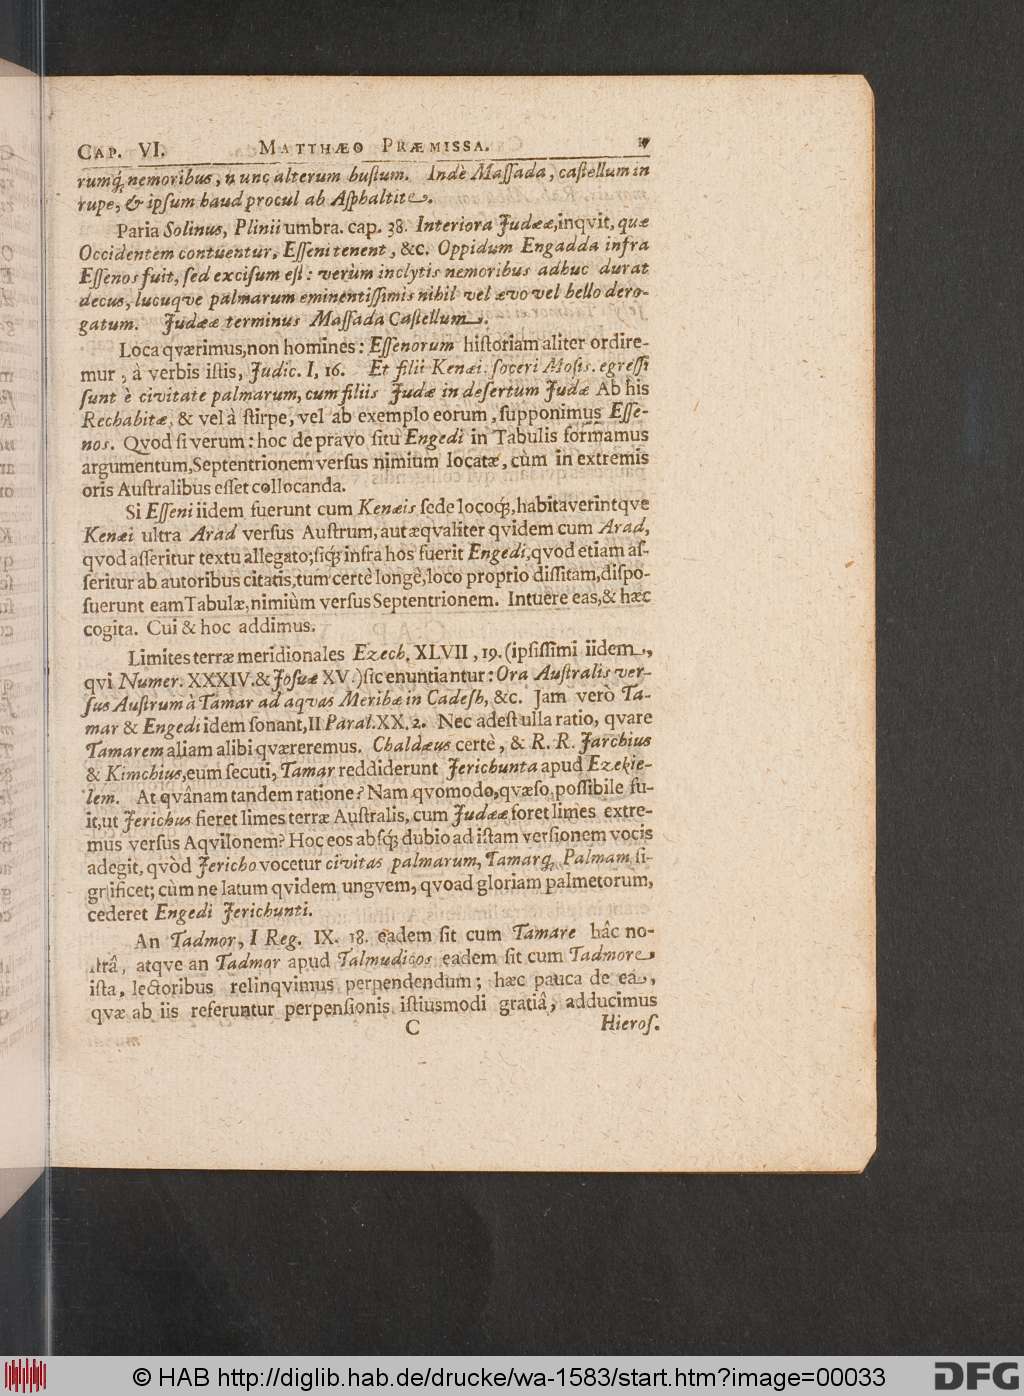 CAP. VI. MATTHÆO PRÆMISSA. 17
rumq́; nemoribus, nunc alterum bustum. Indè Maſſada, caſtellum in
rupe, & ipſum haud procul ab Aſphaltite.
Paria Solinus, Plinii umbra. cap. 38. Interiora Judææ, inqvit, quæ
Occidentem contuentur, Eſſeni tenent, &c. Oppidum Engadda infra
Eſſenos fuit, ſed exciſum eſt: verùm inclytis nemoribus adhuc durat
decus, lucuqve palmarum eminentiſſimis nihil vel ævo vel bello dero-
gatum. Judææ terminus Maſſada Caſtellum.
Loca qværimus, non homines: Eſſenorum hiſtoriam aliter ordire-
mur, à verbis iſtis, Judic. I, 16. Et filii Kenæi. ſoceri Moſis. egreſſi
ſunt è civitate palmarum, cum filiis Judæ in deſertum Judæ Ab his
Rechabitæ, & vel à ſtirpe, vel ab exemplo eorum, ſupponimus Eſſe-
nos. Qvod ſi verum: hoc de pravo ſitu Engedi in Tabulis formamus
argumentum, Septentrionem verſus nimium locatæ, cùm in extremis
oris Auſtralibus eſſet collocanda.
Si Eſſeni iidem fuerunt cum Kenæis ſede locoq́;, habitaverintqve
Kenæi ultra Arad verſus Auſtrum, aut æqvaliter qvidem cum Arad,
qvod aſſeritur textu allegato; ſiq́; infra hos fuerit Engedi, qvod etiam aſ-
ſeritur ab autoribus citatis, tum certè longè, loco proprio diſſitam, diſpo-
ſuerunt eam Tabulæ, nimiùm verſus Septentrionem. Intuere eas, & hæc
cogita. Cui & hoc addimus.
Limites terræ meridionales Ezech. XLVII, 19. (ipſiſſimi iidem,
qvi Numer. XXXIV. & Joſuæ XV.) ſic enuntiantur: Ora Auſtralis ver-
ſus Auſtrum à Tamar ad aqvas Meribæ in Cadeſh, &c. Jam verò Ta-
mar & Engedi idem ſonant, II Paral. XX, 2. Nec adeſt ulla ratio, qvare
Tamarem aliam alibi qværeremus. Chaldæus certè, & R. R. Jarchius
& Kimchius, eum ſecuti, Tamar reddiderunt Jerichunta apud Ezekie-
lem. At qvânam tandem ratione? Nam qvomodo, qvæſo, poſſibile fu-
it, ut Jerichus fieret limes terræ Auſtralis, cum Judææ foret limes extre-
mus verſus Aqvilonem? Hoc eos abſq́; dubio ad iſtam verſionem vocis
adegit, qvòd Jericho vocetur civitas palmarum, Tamarq́; Palmam ſi-
gnificet; cùm ne latum qvidem ungvem, qvoad gloriam palmetorum,
cederet Engedi Jerichunti.
An Tadmor, I Reg. IX. 18. eadem ſit cum Tamare hâc no-
ſtrâ, atqve an Tadmor apud Talmudicos eadem ſit cum Tadmore
iſta, lectoribus relinqvimus perpendendum; hæc pauca de ea,
qvæ ab iis referuntur perpenſionis iſtiusmodi gratiâ, adducimus
C Hieroſ.
© HAB http://diglib.hab.de/drucke/wa-1583/start.htm?image=00033
DFG